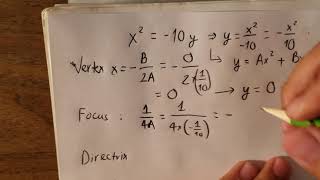 x² = -10y ⇒ y = x²/-10 = -x²/10
Vertex x = -B/2A = -0/2×(1/10) y = Ax² + Bx
= 0 → y = 0
Focus : 1/4A = 1/4×(-1/10) = -
Directrix